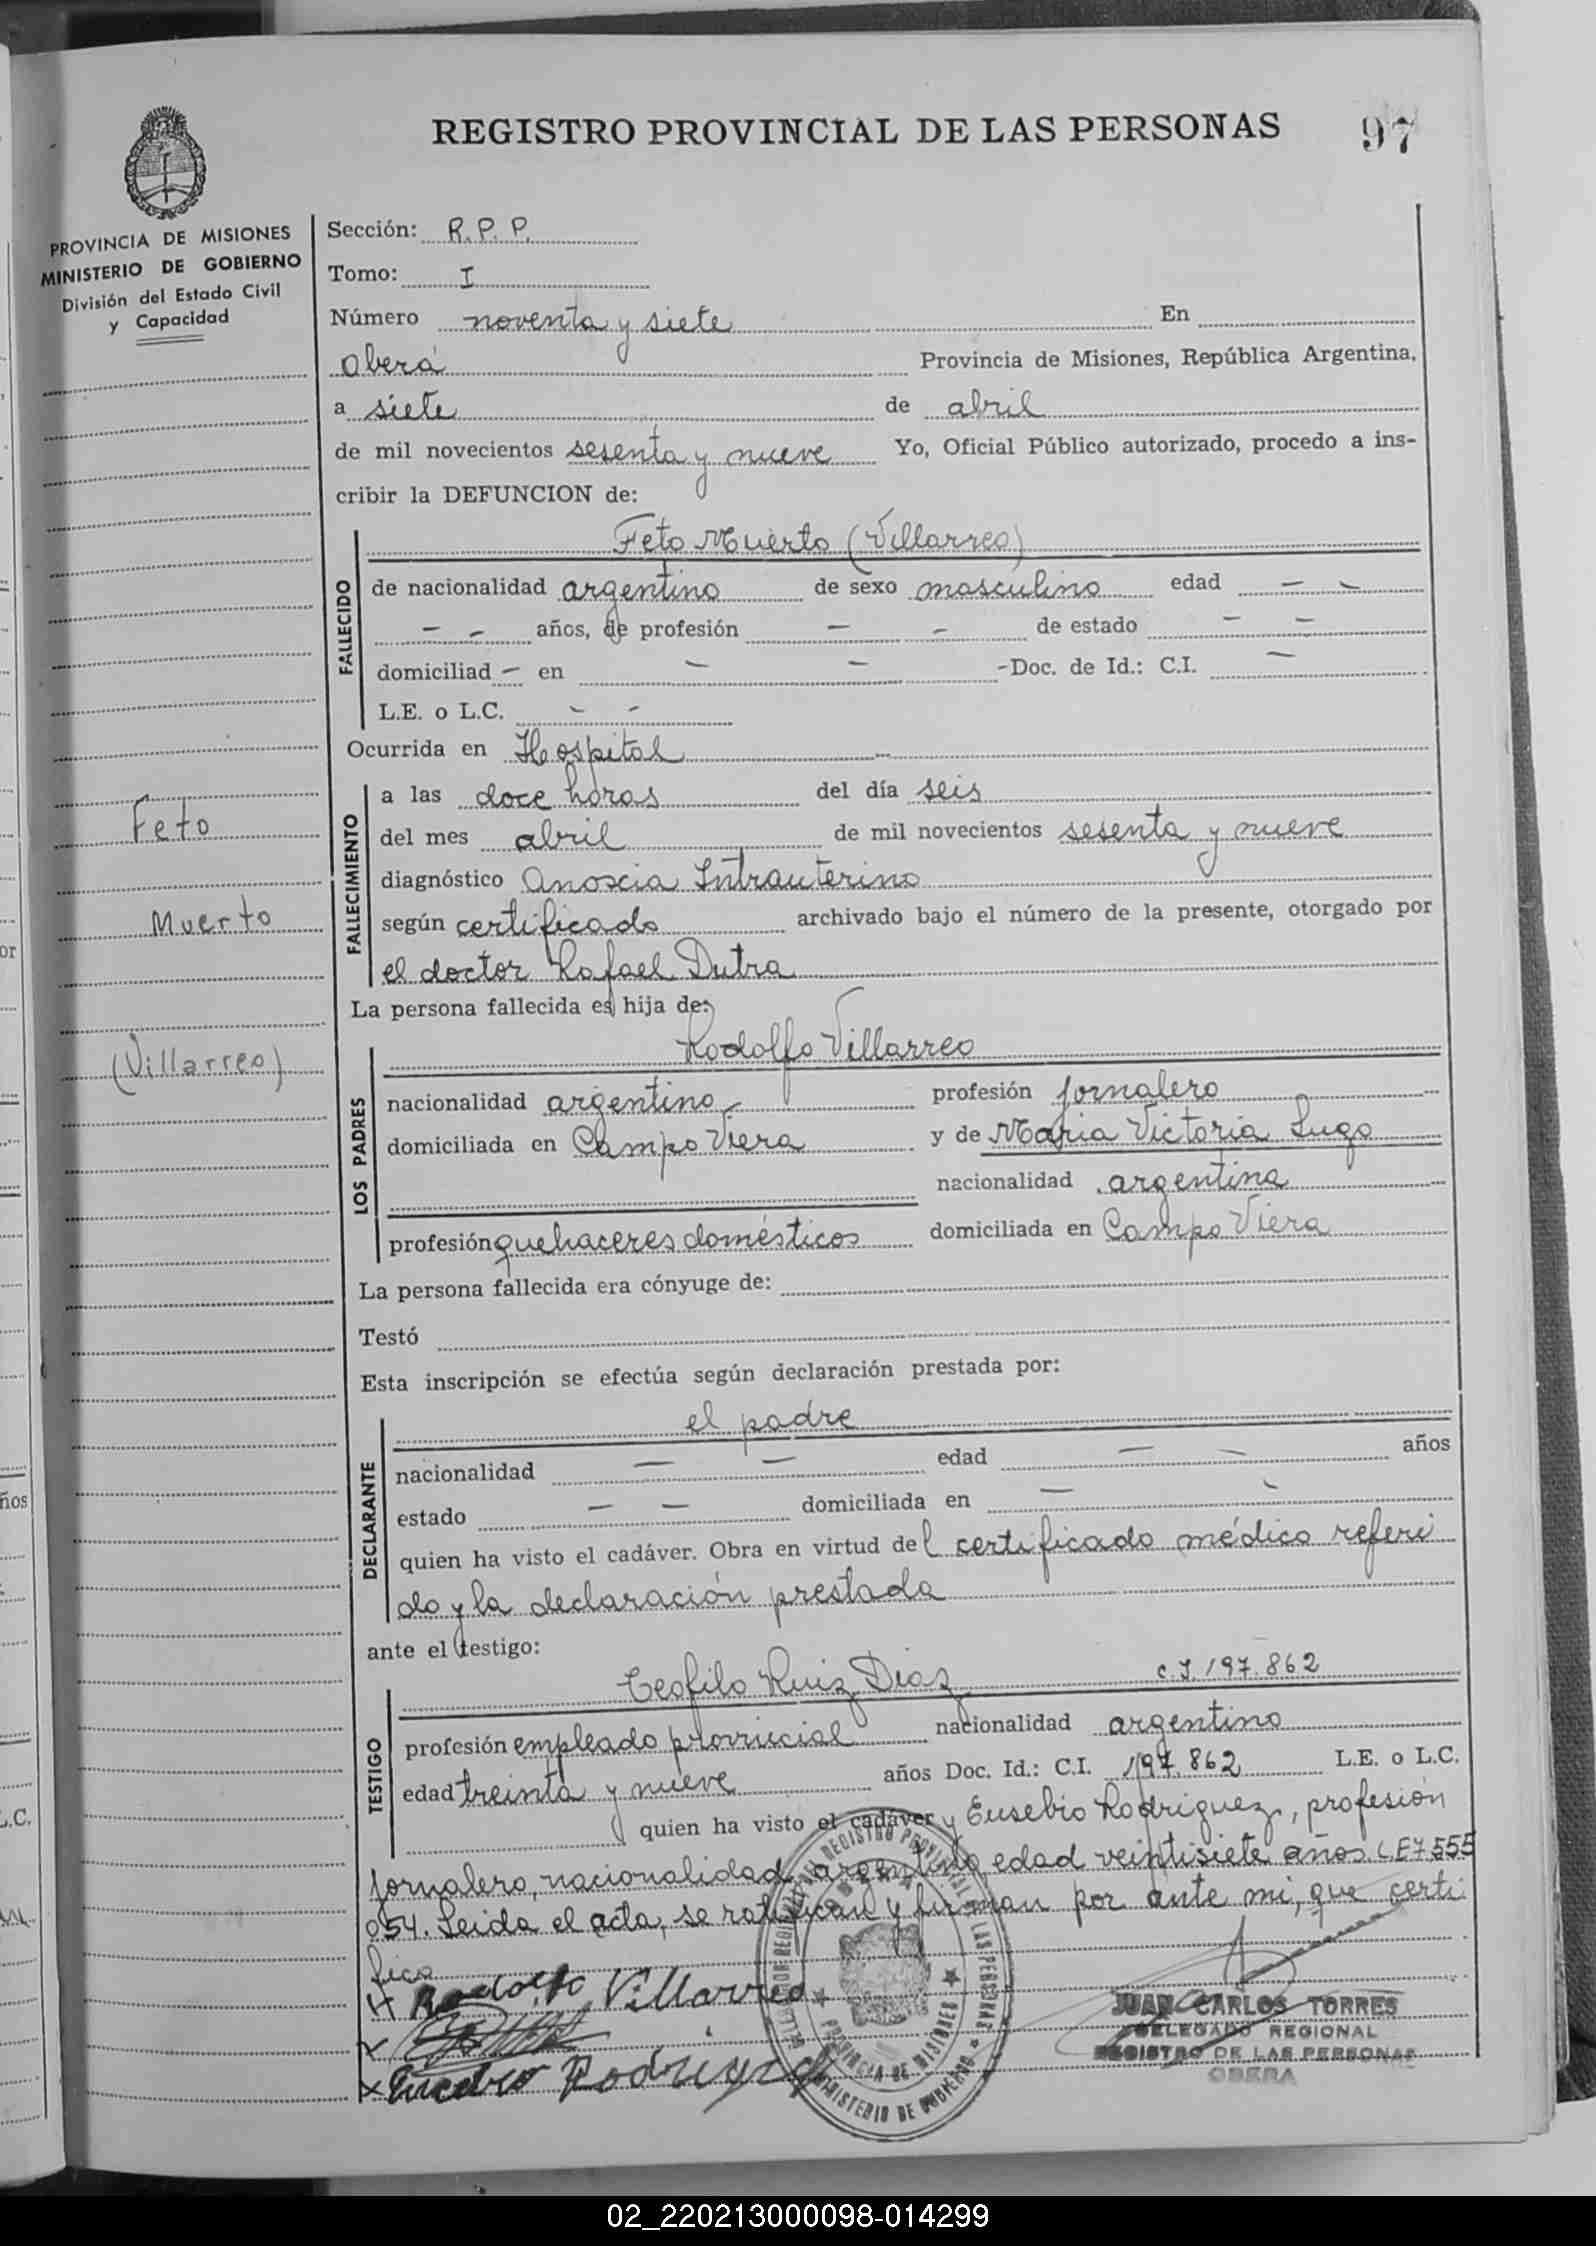 REGISTRO PROVINCIAL DE LAS PERSONAS 97
PROVINCIA DE MISIONES
MINISTERIO DE GOBIERNO
División del Estado Civil
y Capacidad
Sección: R.P.P.
Tomo: I
Número noventa y siete En
Oberá Provincia de Misiones, República Argentina,
a siete de abril
de mil novecientos sesenta y nueve Yo, Oficial Público autorizado, procedo a ins-
cribir la DEFUNCION de:
Feto Muerto (Villarreo)
FALLECIDO
de nacionalidad argentino de sexo masculino edad — —
— — años, de profesión — — de estado — —
domiciliad — en — — -Doc. de Id.: C.I. —
L.E. o L.C. — —
Ocurrida en Hospital
a las doce horas del día seis
Feto
FALLECIMIENTO
del mes abril de mil novecientos sesenta y nueve
diagnóstico Anoscia Intrauterino
Muerto
según certificado archivado bajo el número de la presente, otorgado por
el doctor Rafael Dutra
La persona fallecida es hija de:
(Villarreo)
Rodolfo Villarreo
LOS PADRES
nacionalidad argentino profesión jornalero
domiciliada en Campo Viera y de Maria Victoria Lugo
nacionalidad argentina
profesión quehaceres domésticos domiciliada en Campo Viera
La persona fallecida era cónyuge de:
Testó
Esta inscripción se efectúa según declaración prestada por:
el padre
DECLARANTE
nacionalidad — — edad — — años
estado — — domiciliada en — —
quien ha visto el cadáver. Obra en virtud del certificado médico referi
do y la declaración prestada
ante el testigo:
Teofilo Ruiz Diaz C.I. 197.862
TESTIGO
profesión empleado provincial nacionalidad argentino
edad treinta y nueve años Doc. Id.: C.I. 197.862 L.E. o L.C.
quien ha visto el cadáver y Eusebio Rodriguez, profesión
jornalero, nacionalidad argentino edad veintisiete años. L.E 7.555
054. Leida el acta, se ratifican y firman por ante mi, que certi
fico
Rodolfo Villarreo
Eusebio Rodriguez
JUAN CARLOS TORRES
DELEGADO REGIONAL
REGISTRO DE LAS PERSONAS
OBERA
PROVINCIA DE MISIONES
MINISTERIO DE GOBIERNO
02_220213000098-014299